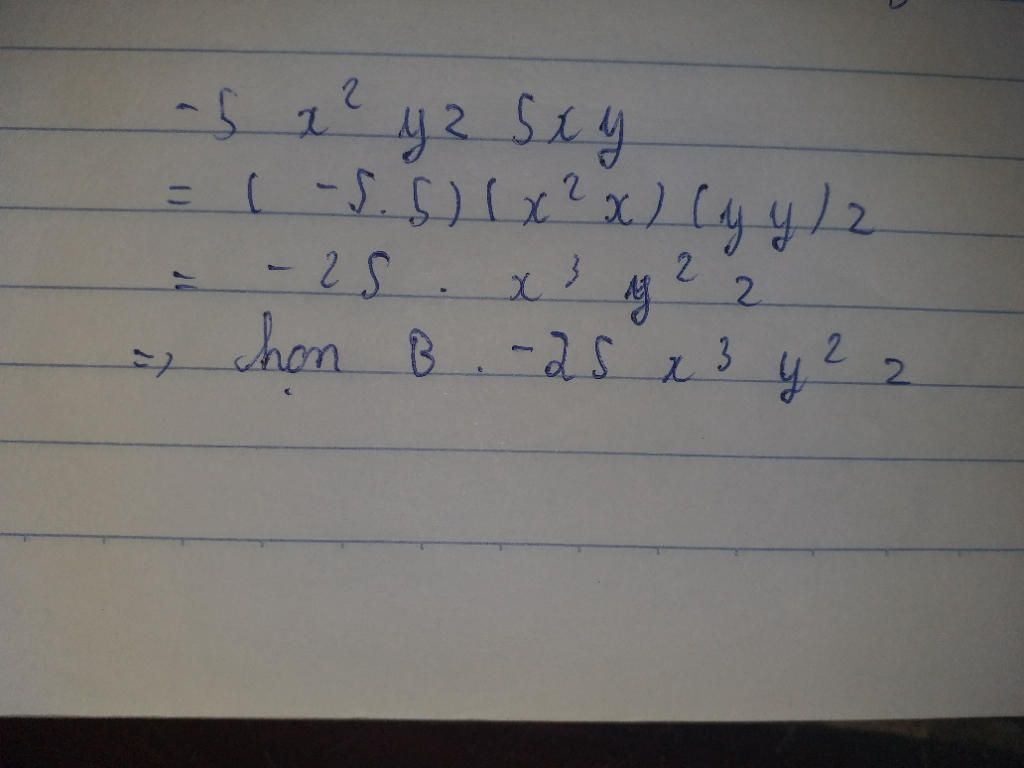 -5 x² yz 5xy
= ( -5.5) (x² x) (y y) z
= -25 . x³ y² z
=> chọn B. -25 x³ y² z